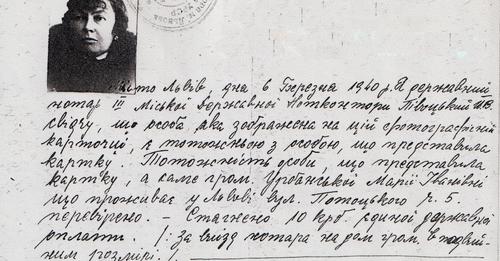 Місто Львів, дня 6 Березня 1940 р. Я державний
нотар III Міської Державної Нотконтори
свідчу, що особа яка зображена на цій фотографічній
карточці, є тотожньою з особою, що представила
картку. Тотожність особи, що представила
картку, а саме гром. Марії Іванівни
що проживає у Львові вул. Потоцького ч. 5.
перевірено. – Стягнено 10 крб. єдиної державної
оплати. /: За виїзд нотара на дом гром. в подвій-
нім розмірі. /